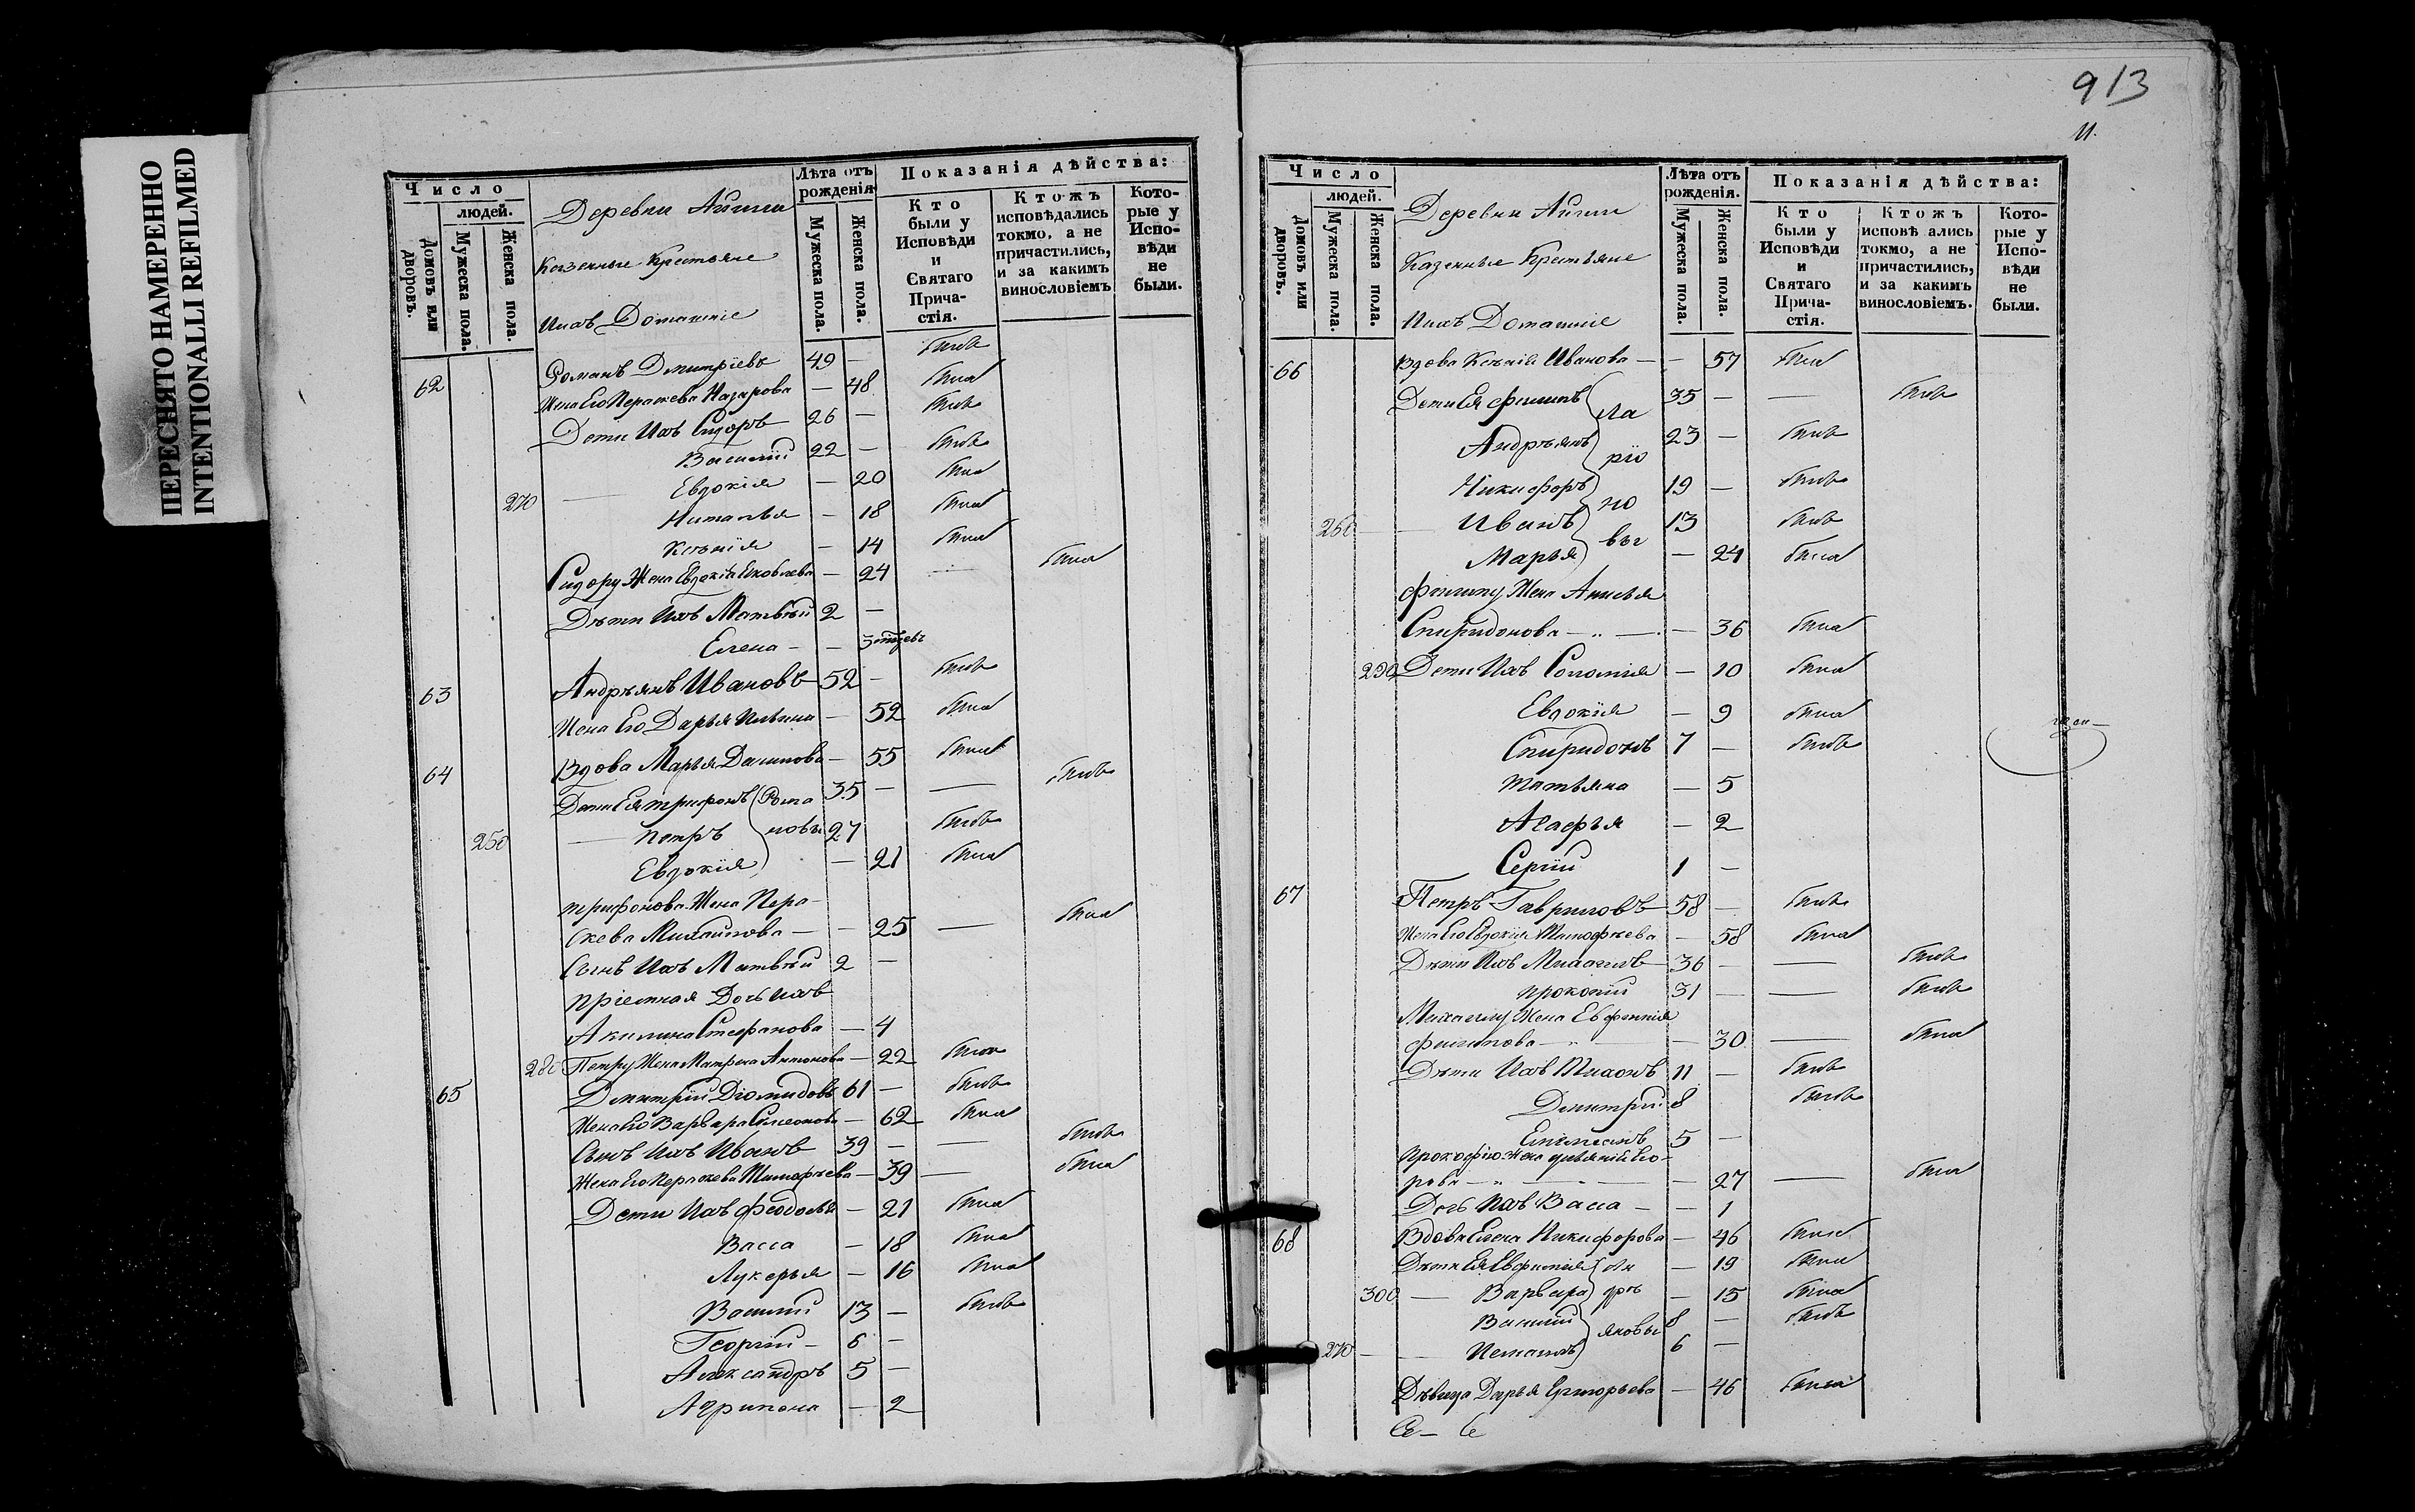 ПЕРЕСНЯТО НАМЕРЕННО
INTENTIONALLI REFILMED
Число
людей.
Домовъ или дворовъ.
Мужеска пола.
Женска пола.
Деревни
Казенные Крестьяне
Ихъ Домашніе
Лѣта отъ рожденія
Мужеска пола.
Женска пола.
Показанія дѣйства:
Кто были у Исповѣди и Святаго Прича-стія.
Ктожъ исповѣдались токмо, а не причастились, и за какимъ винословіемъ
Кото-рые у Испо-вѣди не были.
62 Романъ Дмитріевъ 49 — былъ
Жена Его Параскева Назарова — 48 была
Дети Ихъ Сидоръ 26 — былъ
Василій 22 — былъ
Евдокія — 20 была
270 Наталья — 18 была
Ксенія — 14 была
Сидору Жена Евдокія Яковлева — 24 — была
Дѣти Ихъ Матвѣй 2 —
Елена — —
63 Андреянъ Ивановъ 52 — былъ
Жена Его Дарья Ильина — 52 была
64 Вдова Марья Данилова — 55 была
Дети Ея Трифонъ Рома 35 — — былъ
250 — Петръ новы 27 былъ
Евдокія — 21 была
Трифонова Жена Пара-
скева Михайлова — — 25 — была
Сынъ Ихъ Матвѣй 2 —
Пріемная Дочь Ихъ
Акилина Стефанова — 4
280 Петру Жена Матрена Антонова — 22 была
65 Дмитрій Діомидовъ 61 — былъ
Жена Его Варвара Симеонова — 62 была
Сынъ Ихъ Иванъ 39 — — былъ
Жена Его Параскева Тимофѣева — 39 — была
Дети Ихъ Феодосья — 21 была
Васса — 18 была
Лукерья — 16 была
Василій 13 — былъ
Георгій — 6 —
Александръ 5 —
Агрипена — 2
913
11.
Число
людей.
Домовъ или дворовъ.
Мужеска пола.
Женска пола.
Деревни
Казенные Крестьяне
Ихъ Домашніе
Лѣта отъ рожденія.
Мужеска пола.
Женска пола.
Показанія дѣйства:
Кто были у Исповѣди и Святаго Прича-стія.
Ктожъ исповѣ ались токмо, а не причастились, и за какимъ винословіемъ.
Кото-рые у Испо-вѣди не были.
66 Вдова Ксенія Иванова — — 57 была
Дети Ея Филипъ Ла 35 — — былъ
Андреянъ ріо 23 — былъ
Никифоръ но 19 — былъ
260 — Иванъ 13 былъ
Марья вы — 24 была
Филипу Жена Анисья
Спиридонова — — 36 была
290 Дети Ихъ Соломія — 10 была
Евдокія — 9 была
Спиридонъ 7 — былъ
Татьяна — 5
Агафья — 2
Сергій 1 —
67 Петръ Гавриловъ 58 — былъ
Жена Его Евдокія Тимофѣева — 58 была
Дѣти Ихъ Михаилъ 36 — — былъ
Прокопій 31 — — былъ
Михаилу Жена Евфимія
Филипова — — 30 — была
Дѣти Ихъ Тихонъ 11 — былъ
Дмитрій 8 былъ
5 —
Прокофію Жена Его-
рова — — 27 — была
Дочь Ихъ Васса — — 1
68 Вдова Елена Никифорова — 46 была
Дѣти Ея Евфимія Ан — 19 была
300 — Варвара дре — 15 была
Василій яновы 8 — былъ
270 — 6 —
Дѣвица Дарья Григорьева — 46 была